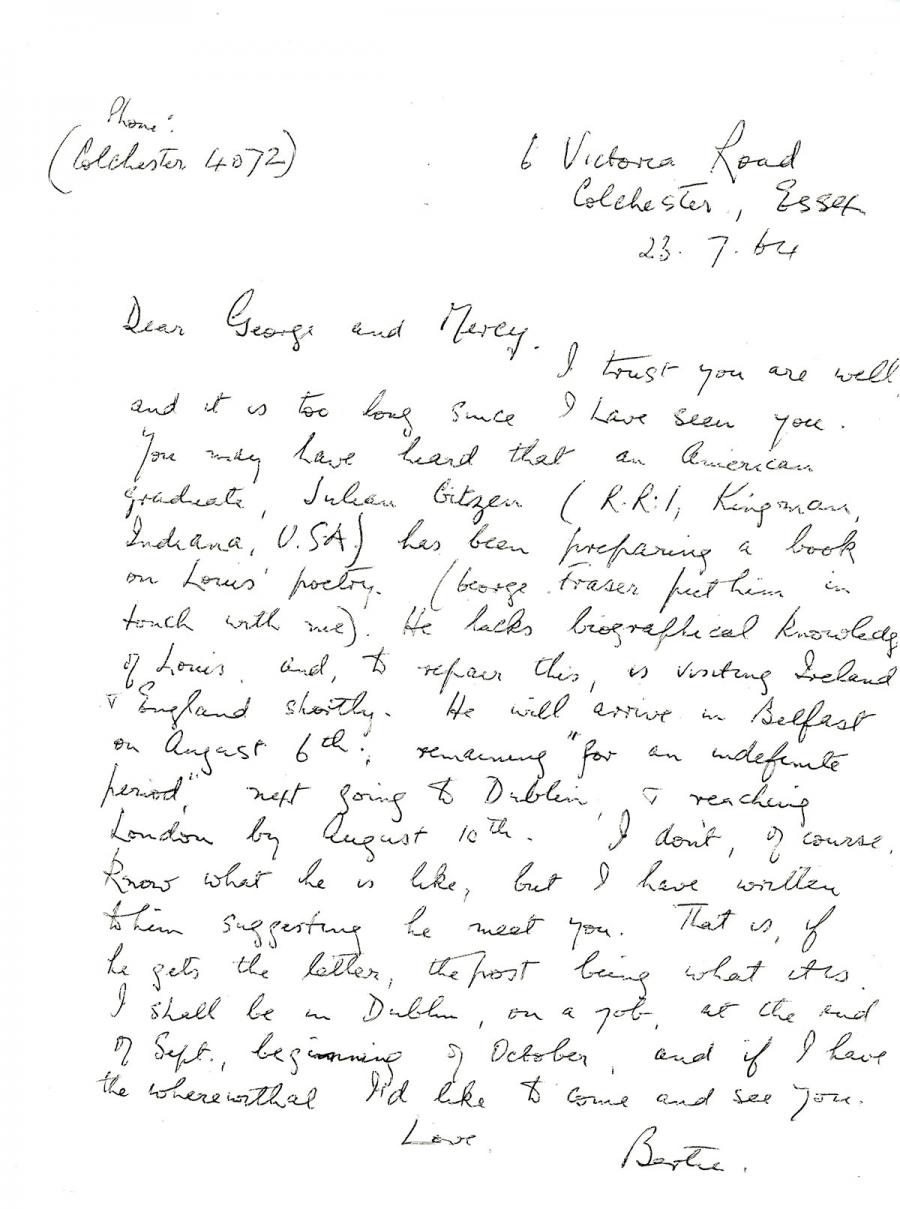 Phone:
(Colchester 4072)
6 Victoria Road
Colchester, Essex
23. 7. 64
Dear George and Mercy.
I trust you are well,
and it is too long since I have seen you.
You may have heard that an American
graduate, Julian Gitzen (R.R.1, Kingman,
Indiana, U.S.A.) has been preparing a book
on Louis' poetry. (George Fraser put him in
touch with me). He lacks biographical knowledg
of Louis, and, to repair this, is visiting Ireland
& England shortly. He will arrive in Belfast
on August 6th; remaining "for an indefinite
period", next going to Dublin, & reaching
London by August 10th. I don't, of course,
know what he is like, but I have written
to him suggesting he meet you. That is, if
he gets the letter, the post being what it is.
I shall be in Dublin, on a job, at the end
of Sept., beginning of October, and if I have
the wherewithal I'd like to come and see you.
Love,
Bertie.